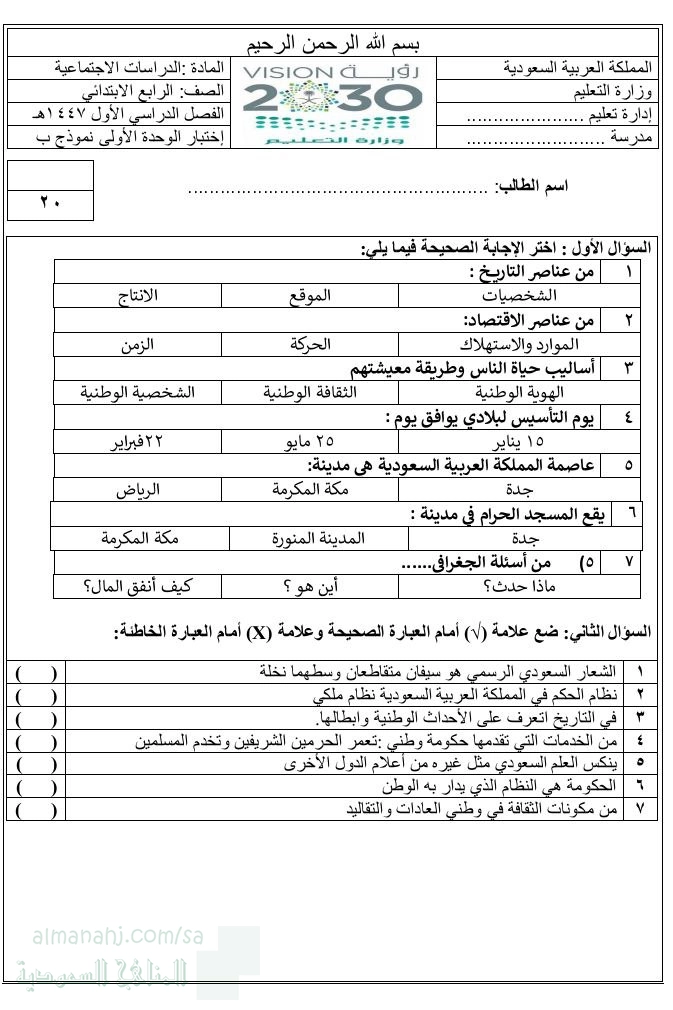 بسم الله الرحمن الرحيم
المملكة العربية السعودية
وزارة التعليم
إدارة تعليم ......................
مدرسة ..........................
VISION رؤيـــة
2030
وزارة التعليم
المادة :الدراسات الاجتماعية
الصف: الرابع الابتدائي
الفصل الدراسي الأول ١٤٤٧هـ
إختبار الوحدة الأولى نموذج ب
اسم الطالب: ........................................................
٢٠
السؤال الأول : اختر الإجابة الصحيحة فيما يلي:
١ من عناصر التاريخ :
الشخصيات الموقع الانتاج
٢ من عناصر الاقتصاد:
الموارد والاستهلاك الحركة الزمن
٣ أساليب حياة الناس وطريقة معيشتهم
الهوية الوطنية الثقافة الوطنية الشخصية الوطنية
٤ يوم التأسيس لبلادي يوافق يوم :
١٥ يناير ٢٥ مايو ٢٢فبراير
٥ عاصمة المملكة العربية السعودية هى مدينة:
جدة مكة المكرمة الرياض
٦ يقع المسجد الحرام في مدينة :
جدة المدينة المنورة مكة المكرمة
٧ ٥) من أسئلة الجغرافى......
ماذا حدث؟ أين هو ؟ كيف أنفق المال؟
السؤال الثاني: ضع علامة (√) أمام العبارة الصحيحة وعلامة (X) أمام العبارة الخاطئة:
١ الشعار السعودي الرسمي هو سيفان متقاطعان وسطهما نخلة ( )
٢ نظام الحكم في المملكة العربية السعودية نظام ملكي ( )
٣ في التاريخ اتعرف على الأحداث الوطنية وابطالها. ( )
٤ من الخدمات التي تقدمها حكومة وطني :تعمر الحرمين الشريفين وتخدم المسلمين ( )
٥ ينكس العلم السعودي مثل غيره من أعلام الدول الأخرى ( )
٦ الحكومة هي النظام الذي يدار به الوطن ( )
٧ من مكونات الثقافة في وطني العادات والتقاليد ( )
almanahj.com/sa
المناهج السعودية